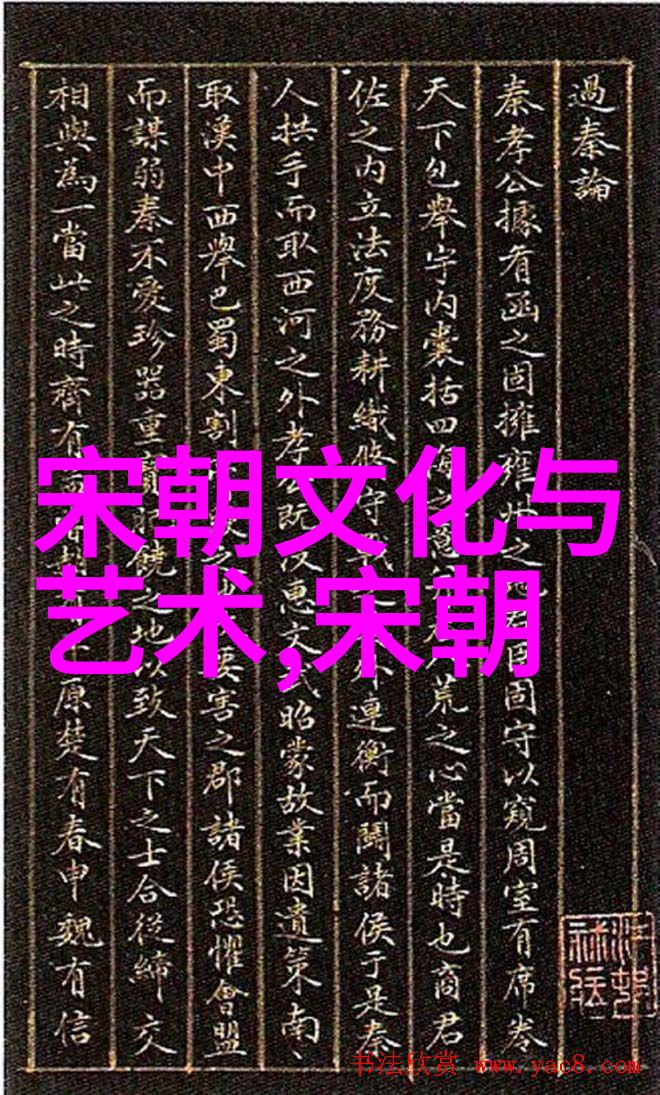 過秦論
秦孝公據肴函之固擁雍州之地君臣固守以窺周室有席卷
天下包舉宇内囊括四海之荒之心當是時也商君
佐之内立法度務耕織修守戰之外連衡而鬭諸侯于是秦
人拱手而取西河之外孝公既没惠文武昭蒙故業因遺策南、
取漢中西舉巴蜀東割之地要害之郡諸侯恐懼會盟
而謀弱秦不愛珍器重寶饒之地以致天下之士合從締交
相與為一當此之時齊有原楚有春申魏有信
宋朝文化与
艺术,宋朝
书法欣赏 www.yac8.com